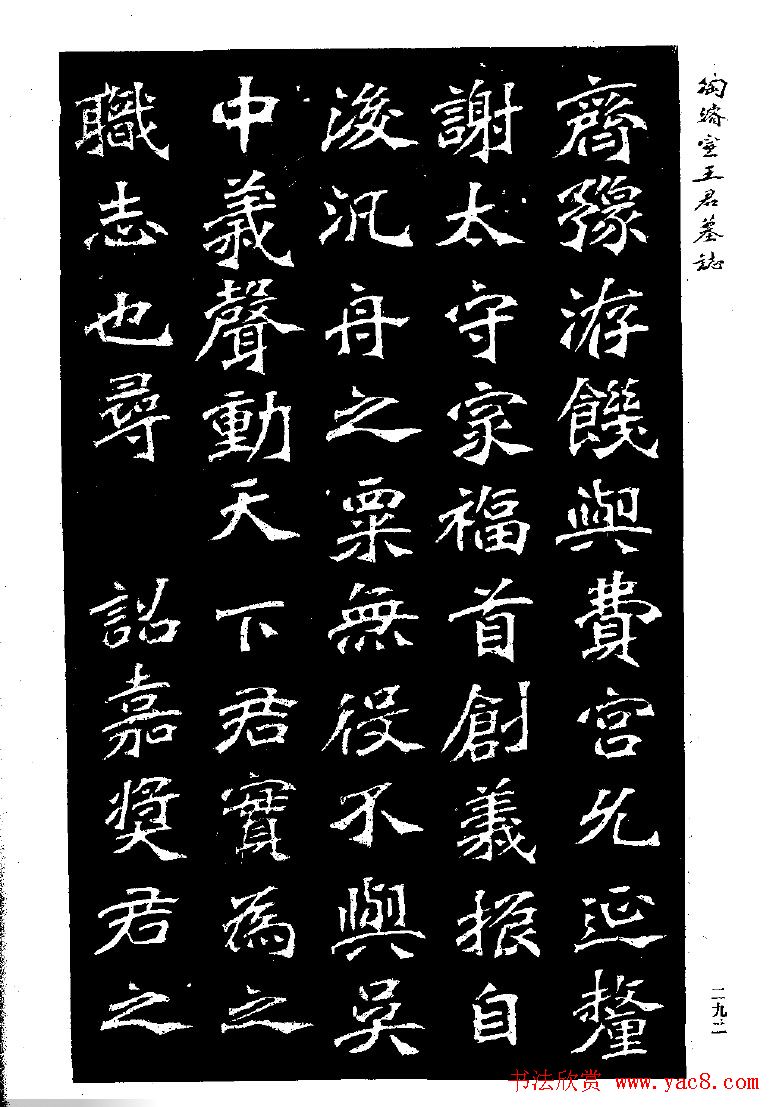 陶濬宣王君墓誌
齊豫洊饑與費宮允延釐
謝太守家福首創義振自
後汎舟之粟無役不與吳
中義聲動天下君實為之
職志也尋 詔嘉獎君之
二九二
书法欣赏 www.yac8.com